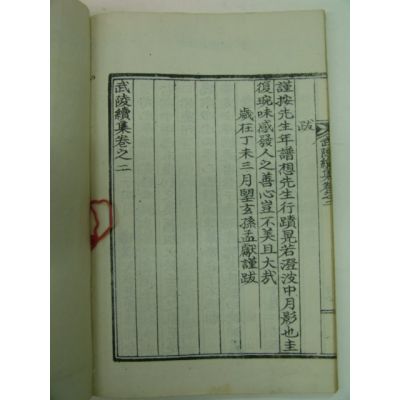 跋
武陵續集卷之二
謹按先生年譜想先生行蹟晃若澄波中月影也圭
復琬味感發人之善心豈不美且大哉
歲在丁未三月望玄孫孟獻謹跋
武陵續集卷之二